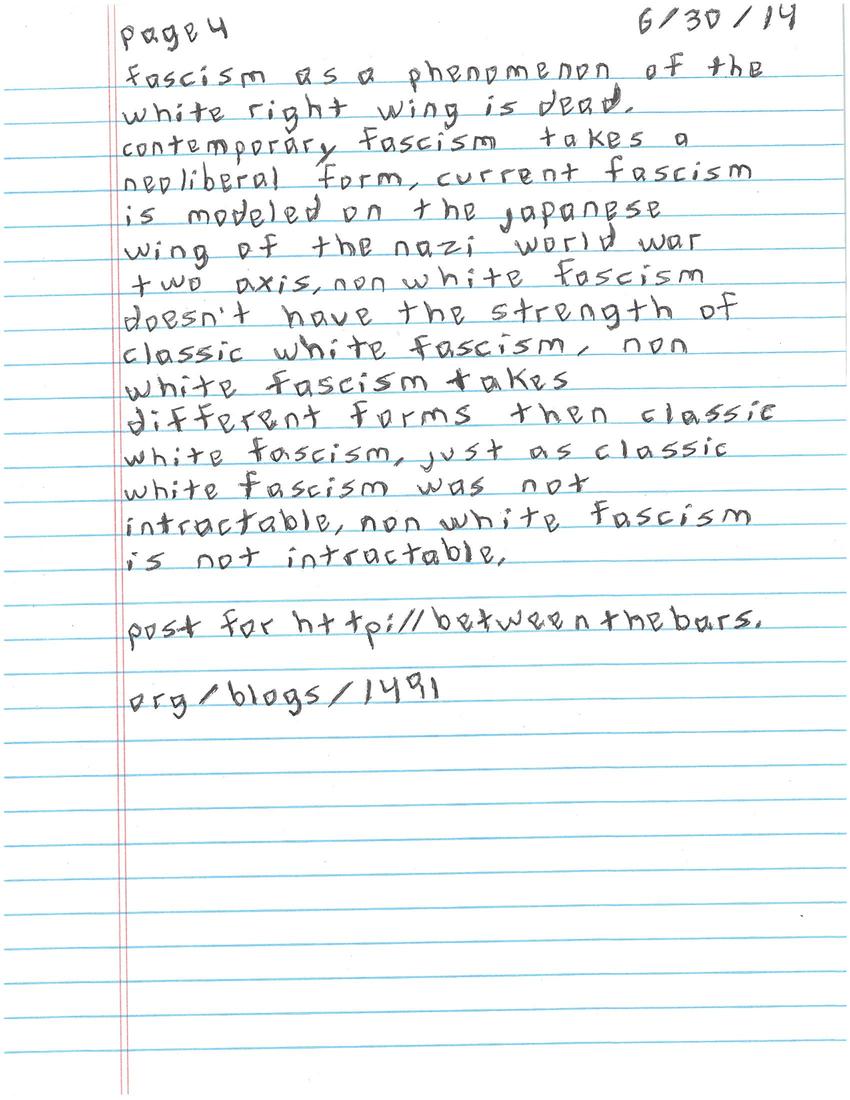 page 4 6/30/14
fascism as a phenomenon of the
white right wing is dead.
contemporary fascism takes a
neoliberal form, current fascism
is modeled on the japanese
wing of the nazi world war
two axis, non white fascism
doesn't have the strength of
classic white fascism, non
white fascism takes
different forms then classic
white fascism, just as classic
white fascism was not
intractable, non white fascism
is not intractable,
post for http://betweenthebars.
org/blogs/1491